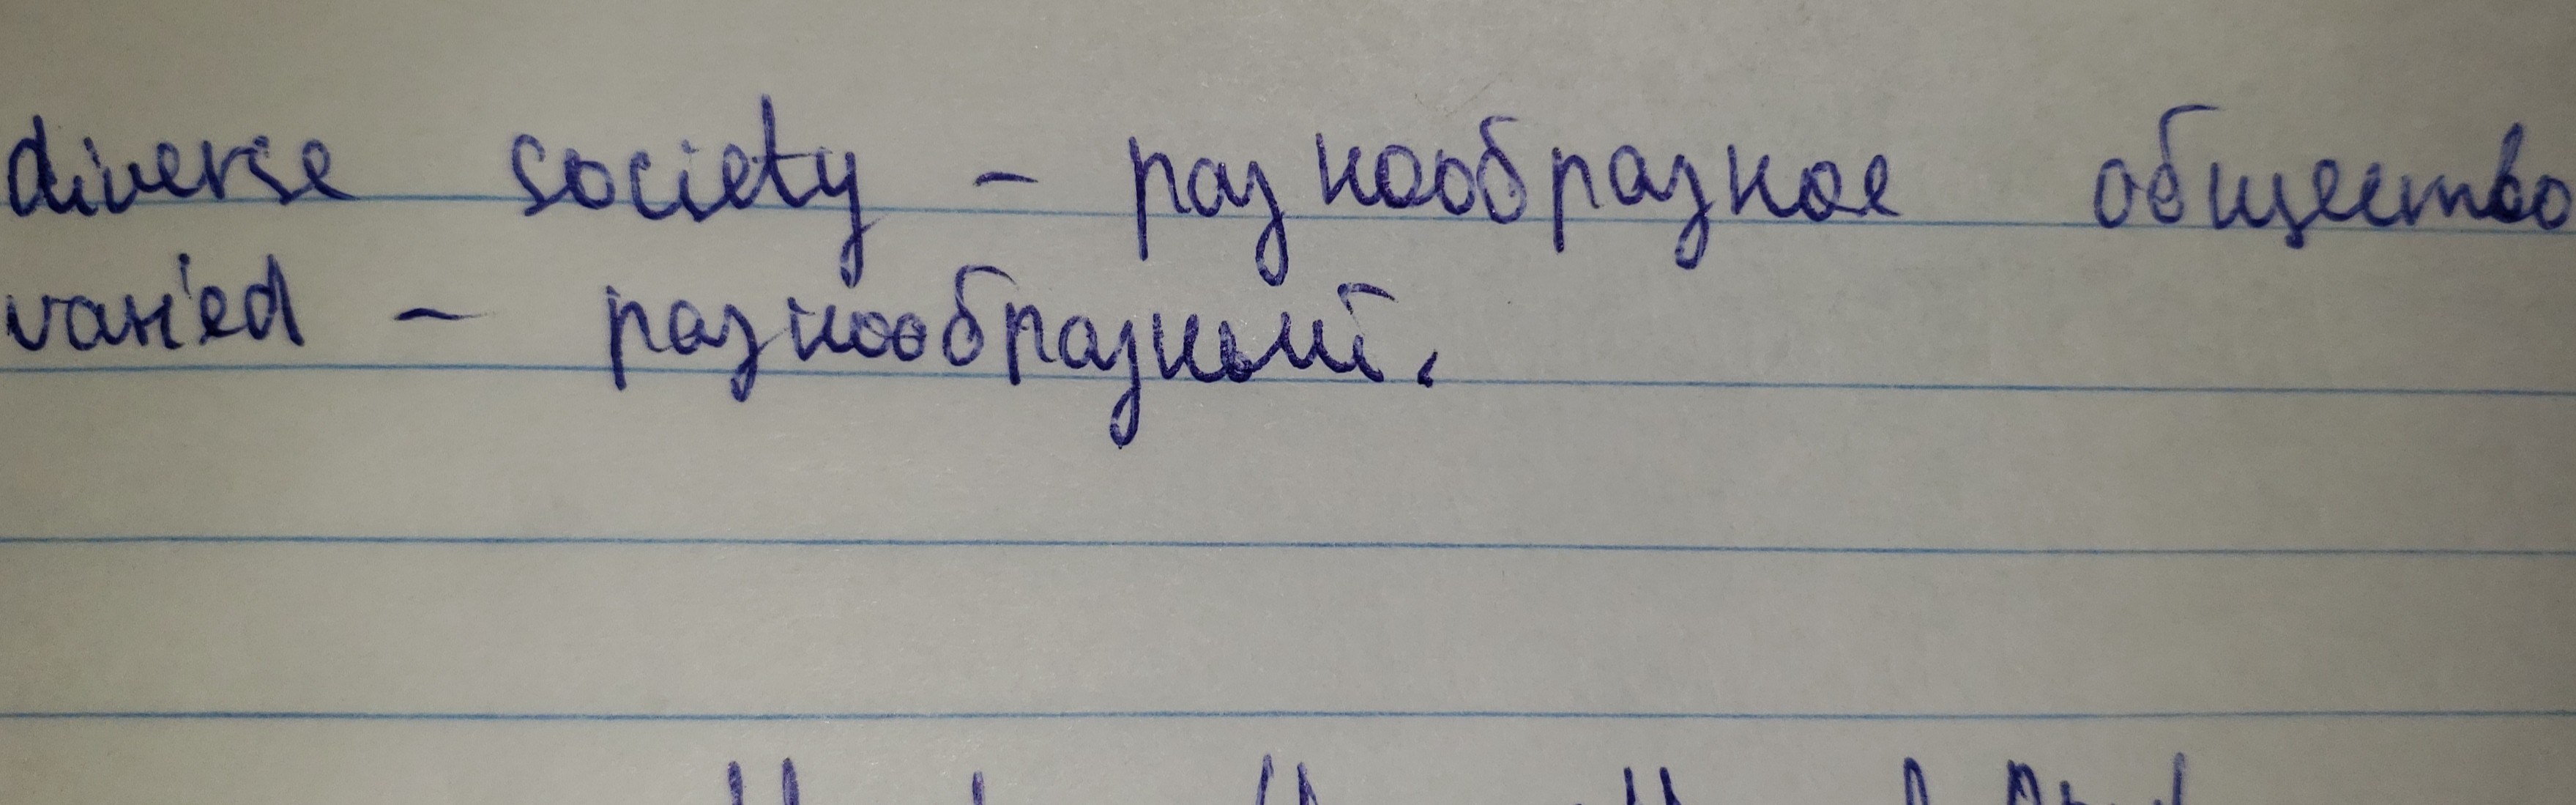 diverse society - разнообразное общество
varied - разнообразный.